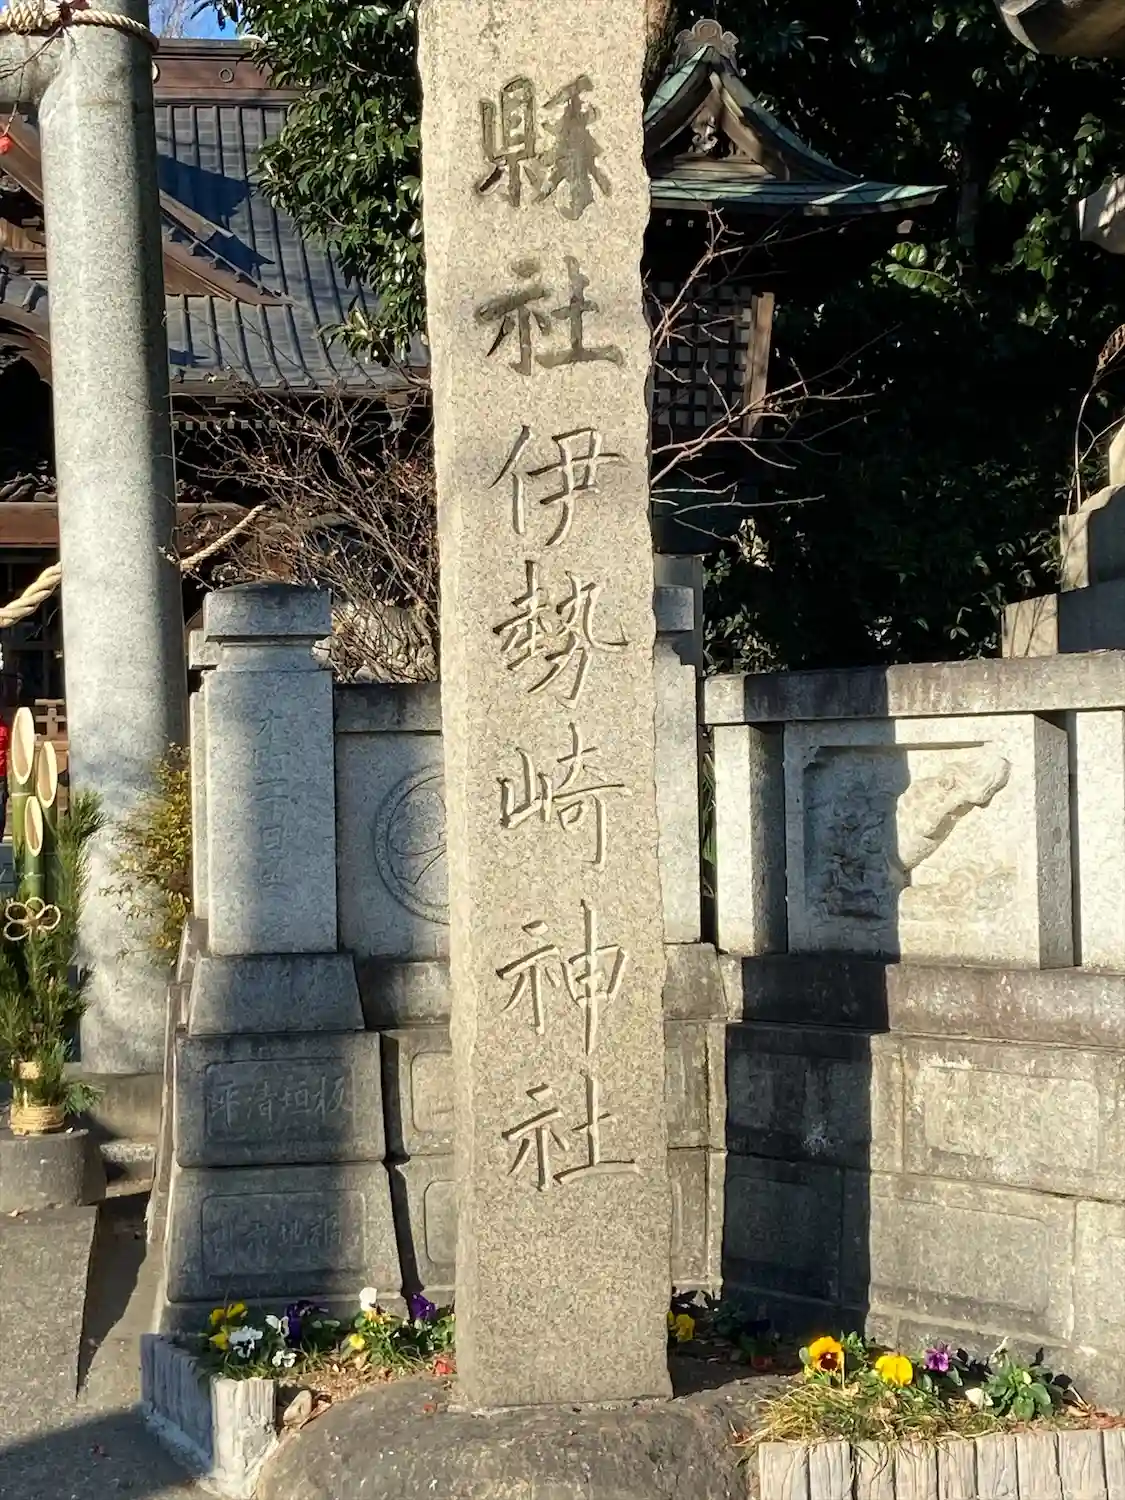 縣社伊勢崎神社
板垣清平